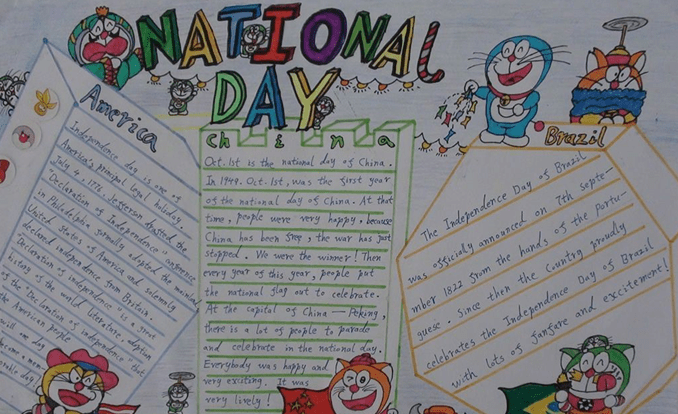 NATIONAL
DAY
America
Independence day is one of
America's principal legal holiday
July 4, 1776, Jefferson drafted the
"Declaration of Independence" conference
in Philadelphia formally adopted the
United States of America and solemnly
declared independence from Britain.
Declaration of independence "is a
history of the world literature, adoption
of the Declaration of independence" that
the American people
will one day
China
Oct. 1st is the national day of China.
In 1949. Oct. 1st, was the first year
of the national day of China. At that
time, people were very happy, because
China has been, the war has just
stopped. We were the winner! Then
every year of this year, people put
the national flag out to celebrate.
At the capital of China — Peking,
there is a lot of people to parade
and celebrate in the national day.
Everybody was happy and
very exciting. It was
very lively!
Brazil
The Independence Day of Brazil
was officialy announced on 7th septe-
mber 1822 from the hands of the Portu-
guese. since then the Country proudly
celebrates the Independence Day of Brazil
with lots of fanfare and excitement!